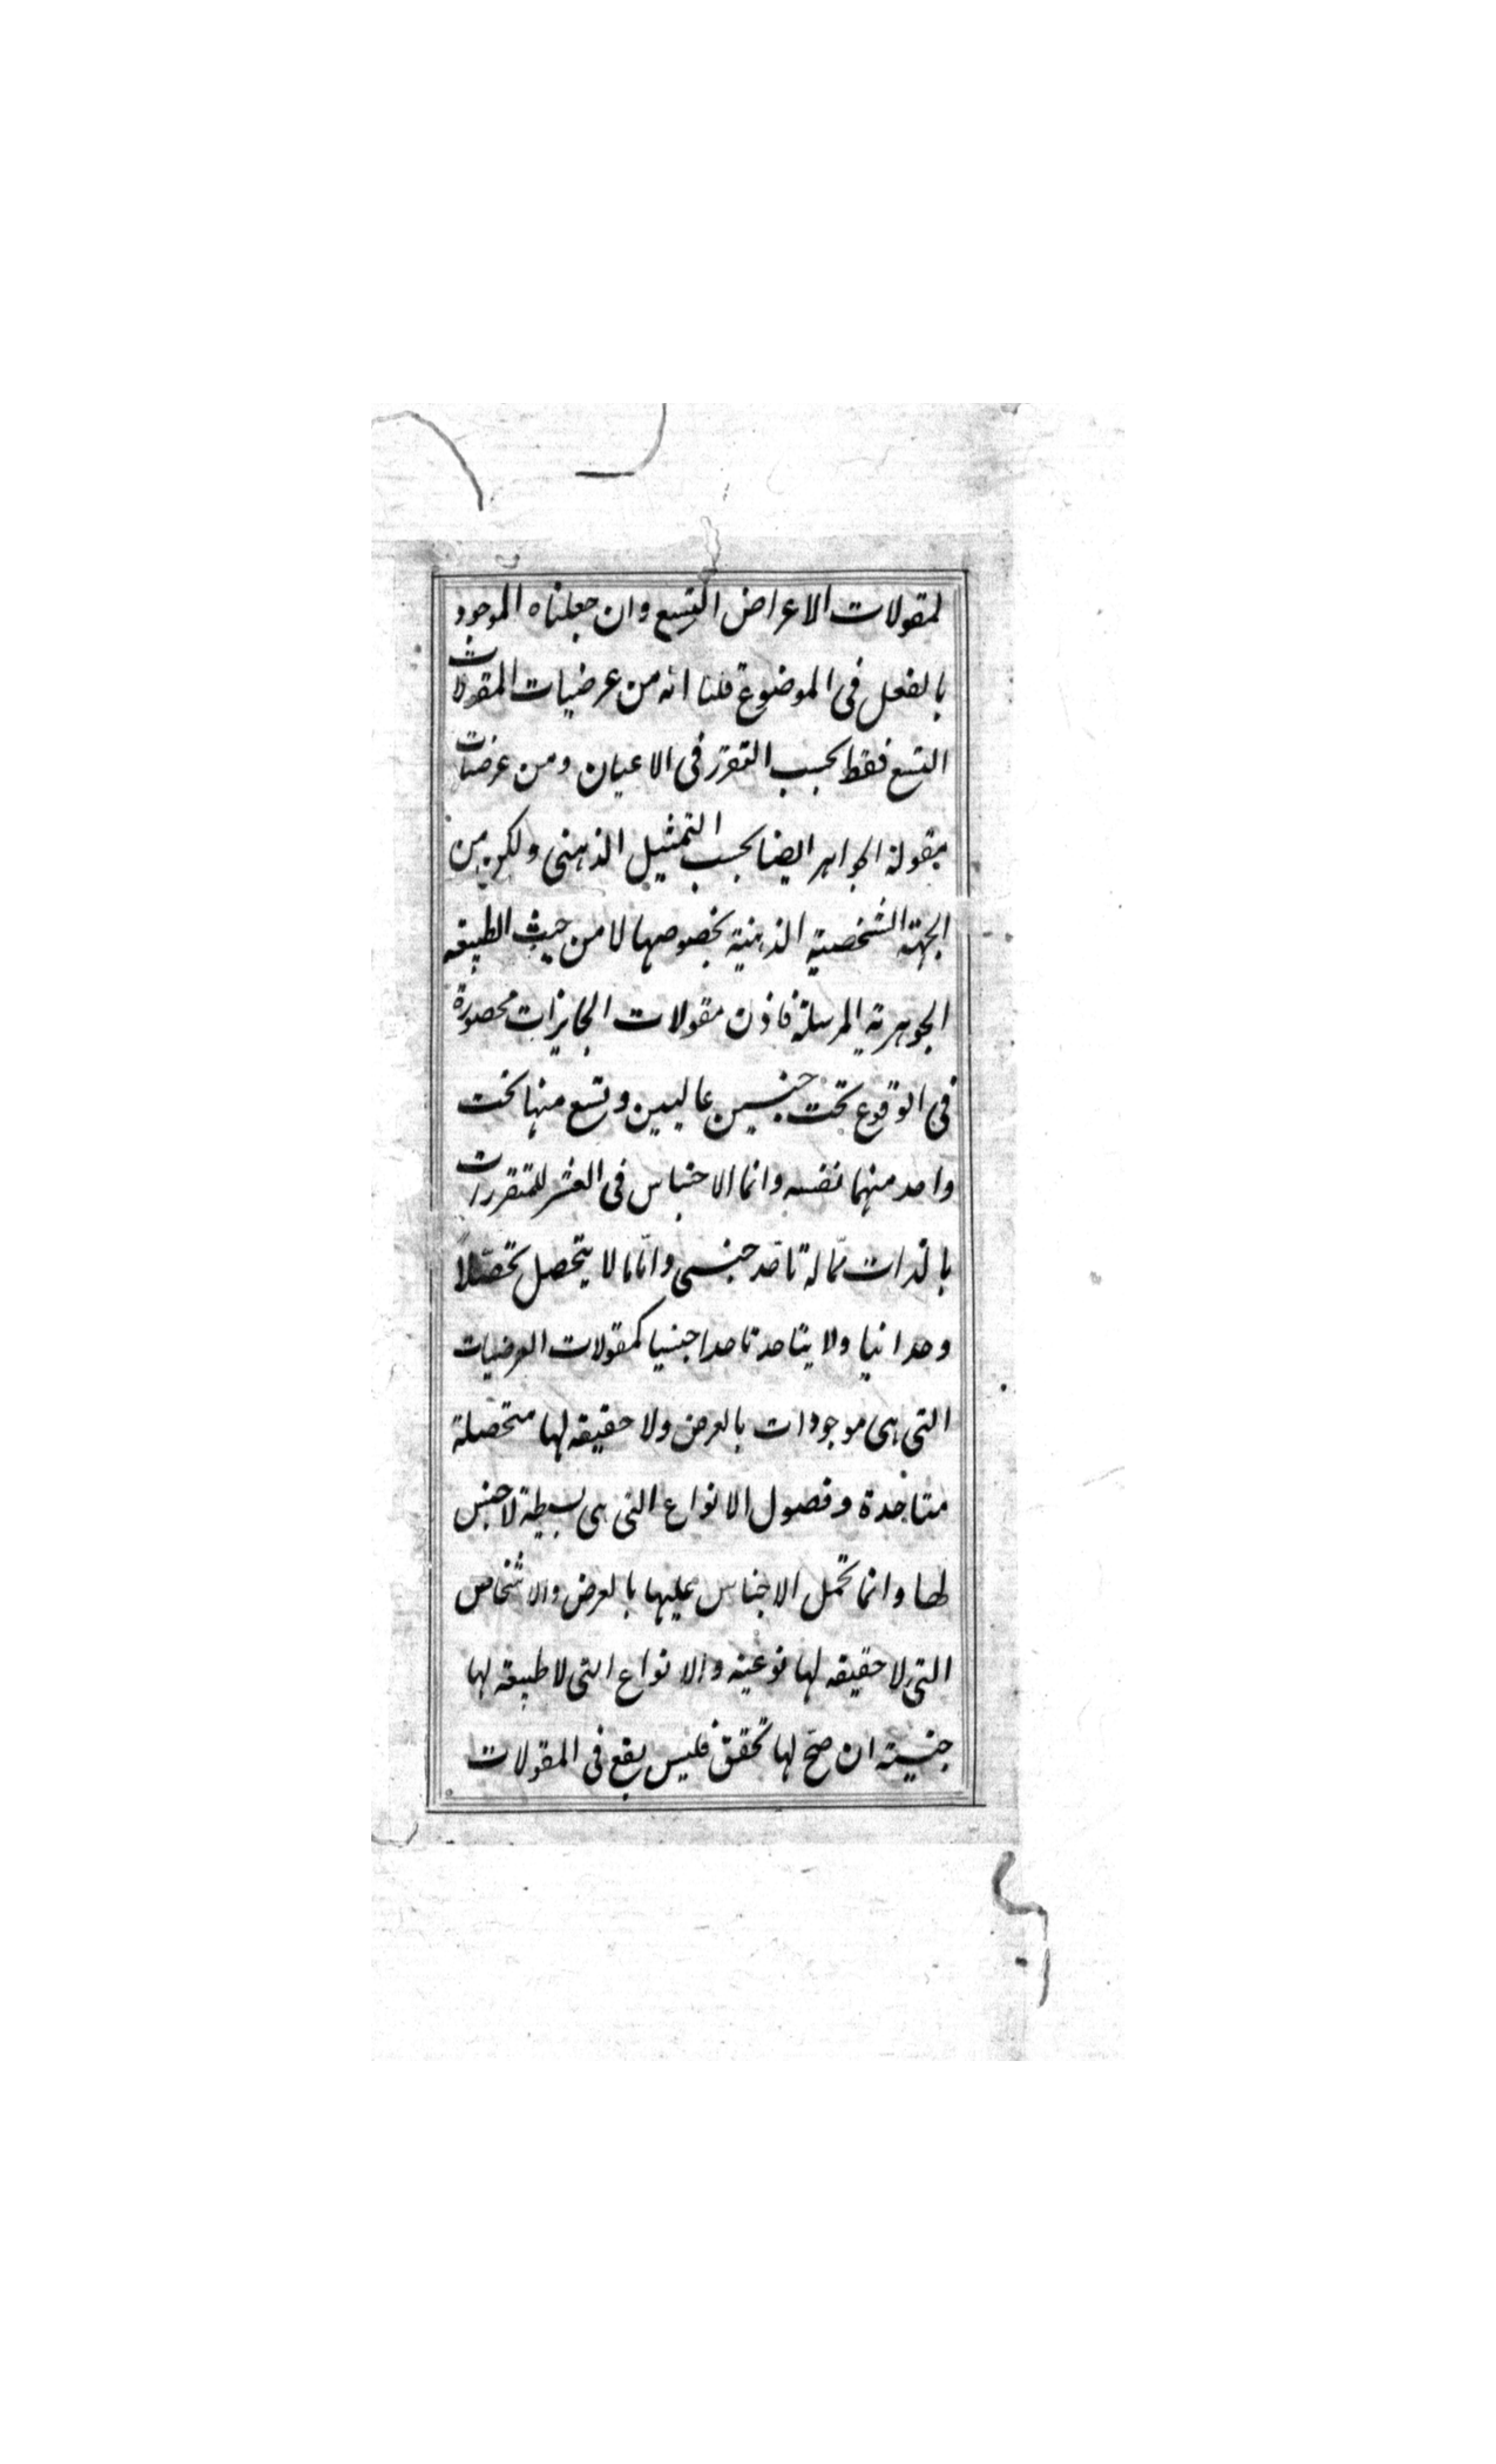 لمقولات الاعراض التسع وان جعلناه الموجود
بالفعل فی الموضوع قلنا انه من عرضیات المقولات
التسع فقط بحسب التقرر فی الاعیان ومن عرضیات
مقولة الجواهر ایضا بحسب التمثیل الذهنی ولکن من
الجهة الشخصیة الذهنیة بخصوصها لا من حیث الطبیعه
الجوهریة المرسلة فاذن مقولات الجایزات محصورة
فی الوقوع تحت جنسین عالیین وتسع منها تحت
واحد منهما نفسه وانما الاجناس فی العشر للمتقررات
بالذات مما له تاحد جنسی واما ما لا یتحصل تحصلاً
وحدانیا ولا یتاحد تاحدا جنسیا کمقولات العرضیات
التی هی موجودات بالعرض ولا حقیقه لها متحصلة
متاحدة وفصول الانواع التی هی بسیطة لا جنس
لها وانما تحمل الاجناس علیها بالعرض والاشخاص
التی لا حقیقه لها نوعیه والانواع التی لا طبیعه لها
جنسیة ان صح لها تحقق فلیس یقع فی المقولات